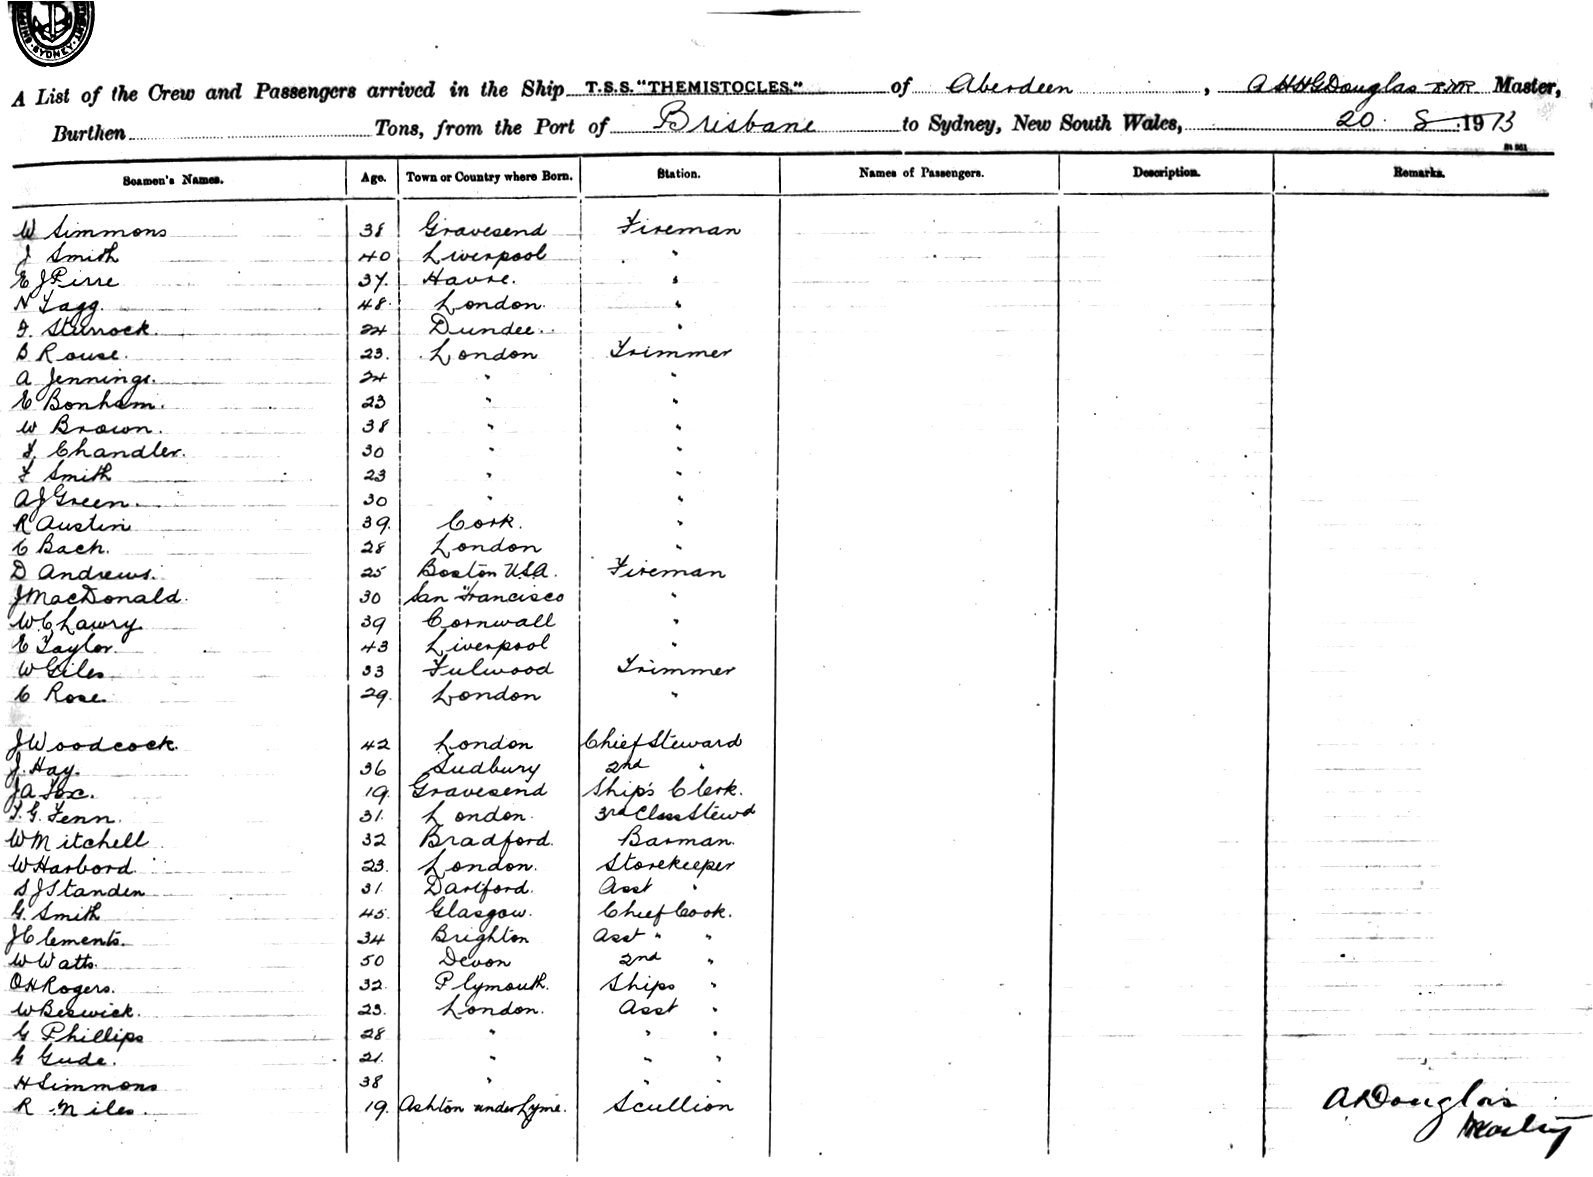 SYDNEY
A List of the Crew and Passengers arrived in the Ship T.S.S. "THEMISTOCLES." of Aberdeen, A H H G Douglas RNR Master,
Burthen Tons, from the Port of Brisbane to Sydney, New South Wales, 20 8 1913
Seamen's Names. Age. Town or Country where Born. Station. Names of Passengers. Description. Remarks.
W Simmons 38 Gravesend Fireman
J Smith 40 Liverpool "
E J Pirre 37. Havre. "
N Tagg. 48. London "
F. Sturrock. 24 Dundee. "
B Rouse. 23. London Trimmer
A Jennings. 24 " "
E Bonham. 23 " "
W Brown. 38 " "
F. Chandler. 30 " "
F Smith 23 " "
A J Green. 30 " "
R Austin 39. Cork. "
C Bach. 28 London "
D Andrews. 25 Boston U.S.A. Fireman
J MacDonald. 30 San Francisco "
W. C Lawry. 39 Cornwall "
E Taylor. 43 Liverpool "
W Giles 33 Fulwood Trimmer
C Rose. 29. London "
J Woodcock. 42 London Chief Steward
J. Hay. 36 Sudbury 2nd "
J A Fox. 19. Gravesend Ship's Clerk.
F. G. Fenn. 31. London. 3rd Class Stewd
W Mitchell 32 Bradford. Barman.
W Harbord. 23. London. Storekeeper
S J Standen 31. Dartford. Asst "
G. Smith 45. Glasgow. Chief Cook.
J Clements. 34 Brighton Asst " "
W Watts. 50 Devon 2nd "
O H Rogers. 32. Plymouth. Ships "
W Beswick. 23. London. Asst "
G Phillips 28 " " "
G Gude. 21. " " "
H Simmons 38 " " "
R Niles. 19. Ashton under Lyme. Scullion
A Douglas
Master